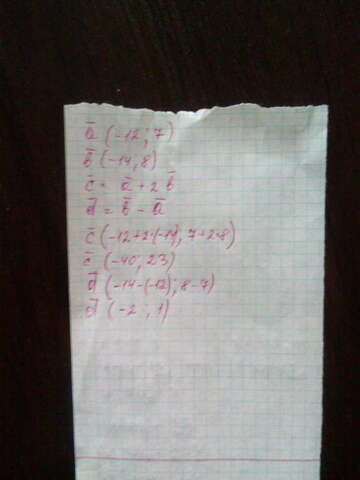 a̅ (-12; 7)
b̅ (-14, 8)
c̅ = a̅ + 2 b̅
d̅ = b̅ - a̅
c̅ (-12+2·(-14); 7+2·8)
c̅ (-40; 23)
d̅ (-14-(-12); 8-7)
d̅ (-2 ; 1)